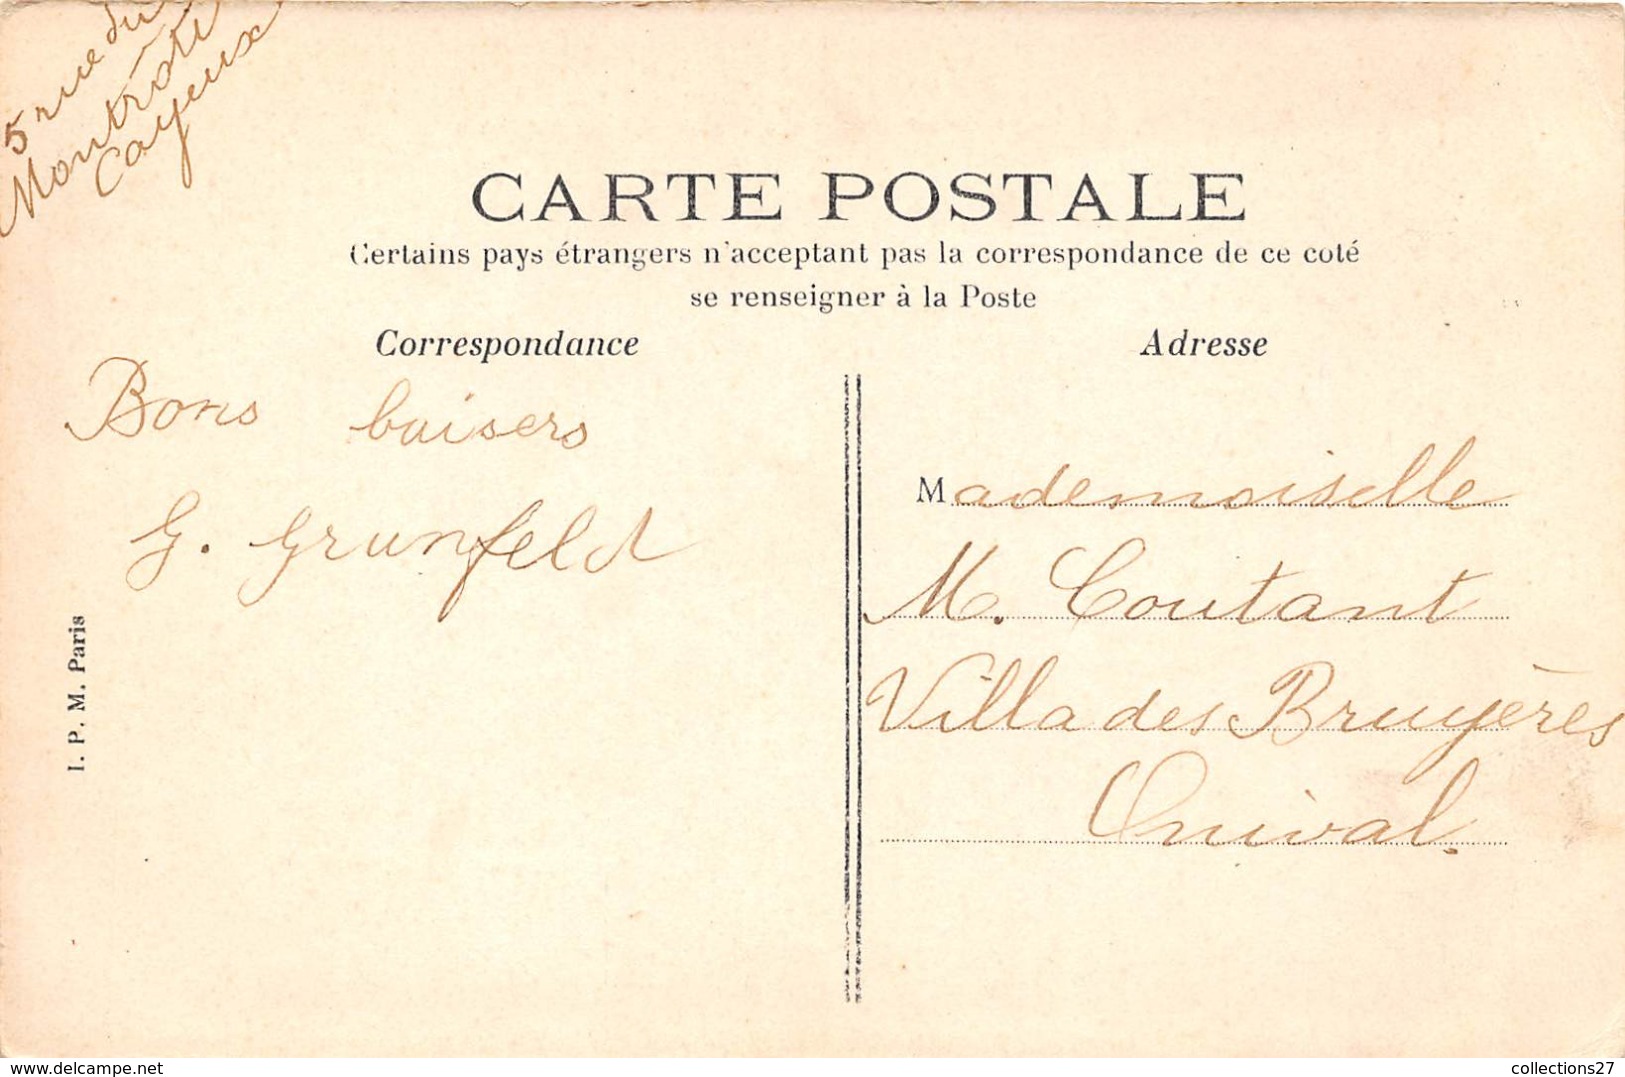 5 rue du
Montrôti
Cayeux
CARTE POSTALE
Certains pays étrangers n'acceptant pas la correspondance de ce coté
se renseigner à la Poste
Correspondance
Adresse
Bons baisers
G. Grunfeld
I. P. M. Paris
Mademoiselle
M. Coutant
Villa des Bruyères
Onival.
www.delcampe.net
collections27